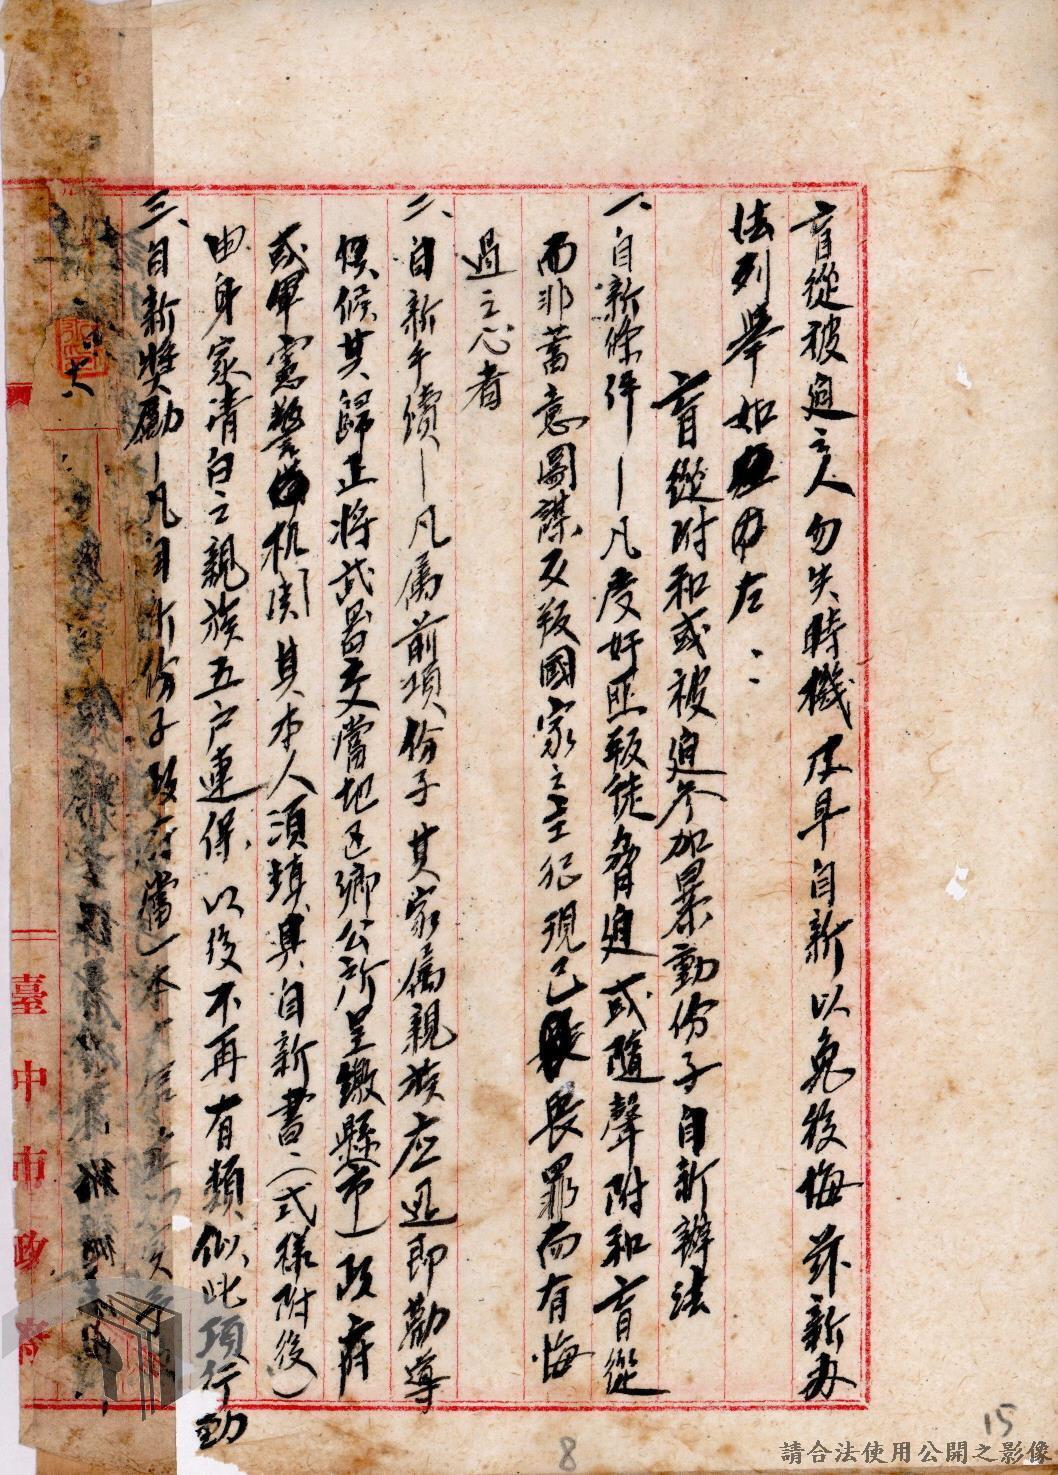 盲從被迫之人勿失時機及早自新以免後悔茲新办
法列舉如左：
盲從附和或被迫參加暴動份子自新辦法
一、自新條件—凡受奸匪叛徒脅迫或隨聲附和盲從
而非蓄意圖謀反叛國家之主犯現已畏罪而有悔
過之心者
二、自新手續—凡屬前項份子其家屬親族应迅即勸導
其歸正將武器交當地区鄉公所呈繳縣市政府
或軍憲警机関其本人須填具自新書（式樣附後）
由身家清白之親族五户連保以後不再有類似此項行動
三、自新獎勵—凡自新份子政府當本
臺中市政府
15
8
請合法使用公開之影像